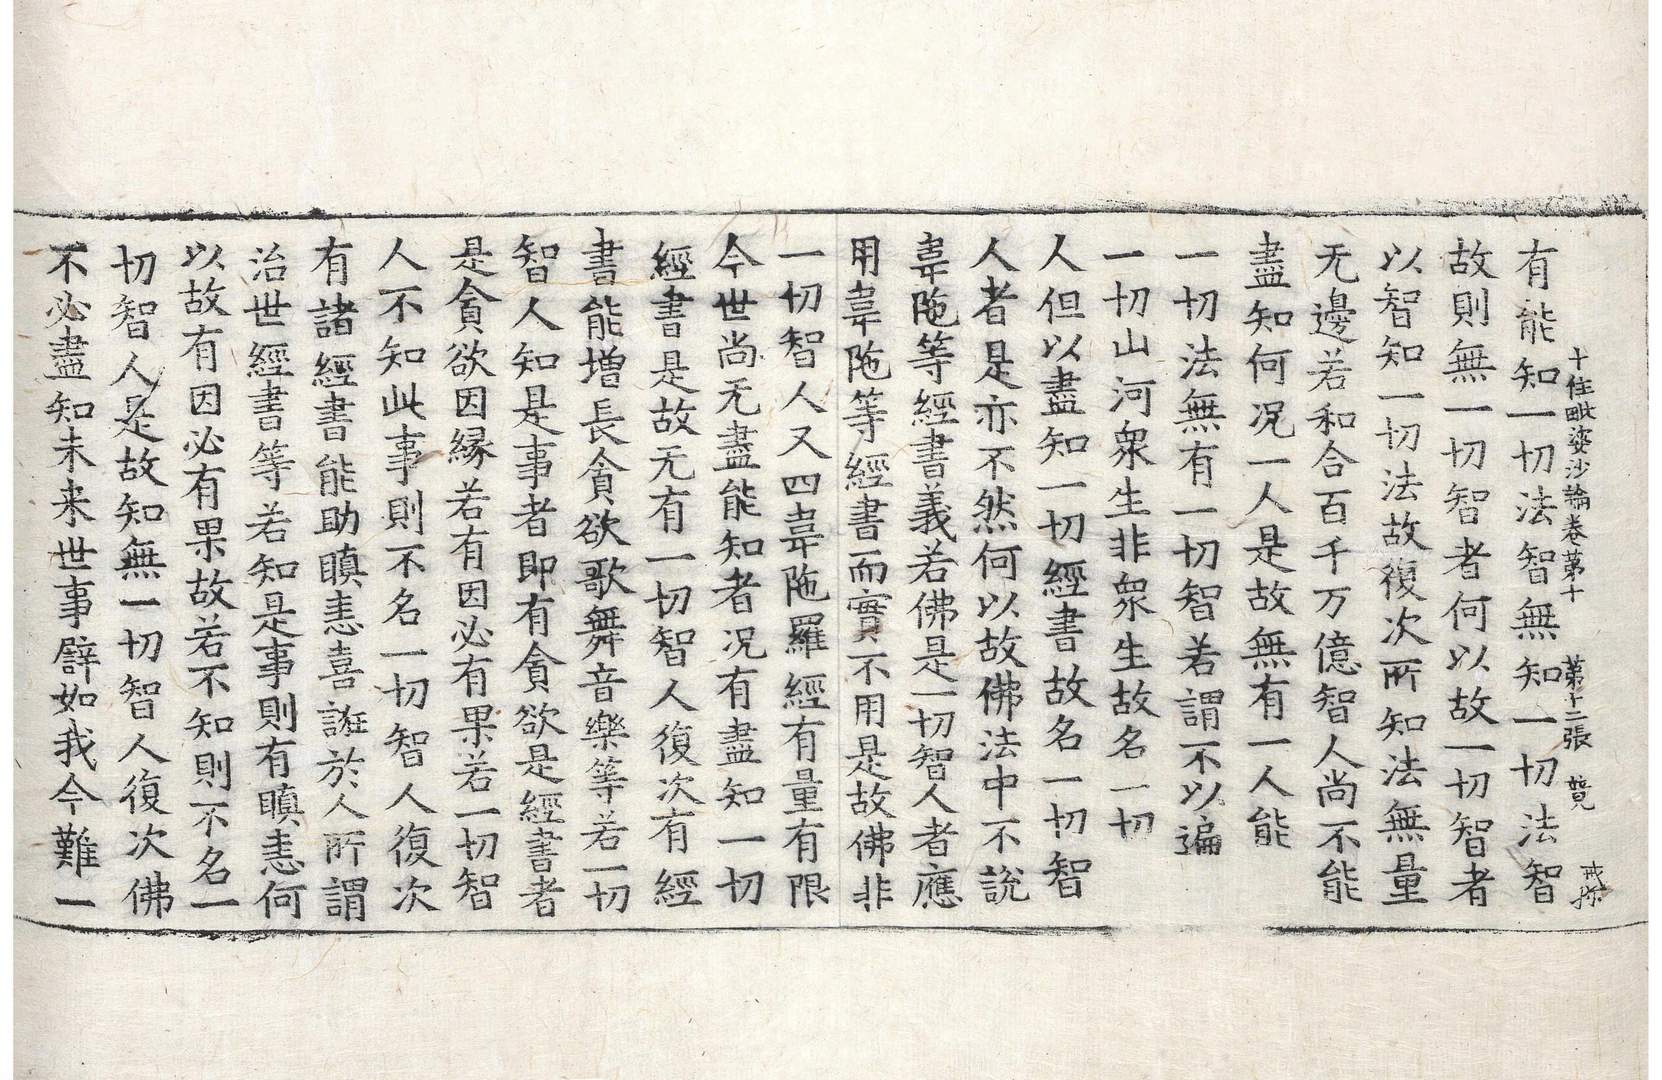 十住毗婆沙論卷第十 第十二張 競
有能知一切法智無知一切法智
故則無一切智者何以故一切智者
以智知一切法故復次所知法無量
无邊若和合百千万億智人尚不能
盡知何況一人是故無有一人能
一切法無有一切智若謂不以遍
一切山河衆生非衆生故名一切
人但以盡知一切經書故名一切智
人者是亦不然何以故佛法中不說
韋陁等經書義若佛是一切智人者應
用韋陁等經書而實不用是故佛非
一切智人又四韋陁羅經有量有限
今世尚无盡能知者況有盡知一切
經書是故无有一切智人復次有經
書能增長貪欲歌舞音樂等若一切
智人知是事者即有貪欲是經書者
是貪欲因縁若有因必有果若一切智
人不知此事則不名一切智人復次
有諸經書能助瞋恚喜誑於人所謂
治世經書等若知是事則有瞋恚何
以故有因必有果故若不知則不名一
切智人是故知無一切智人復次佛
不必盡知未来世事譬如我今難一